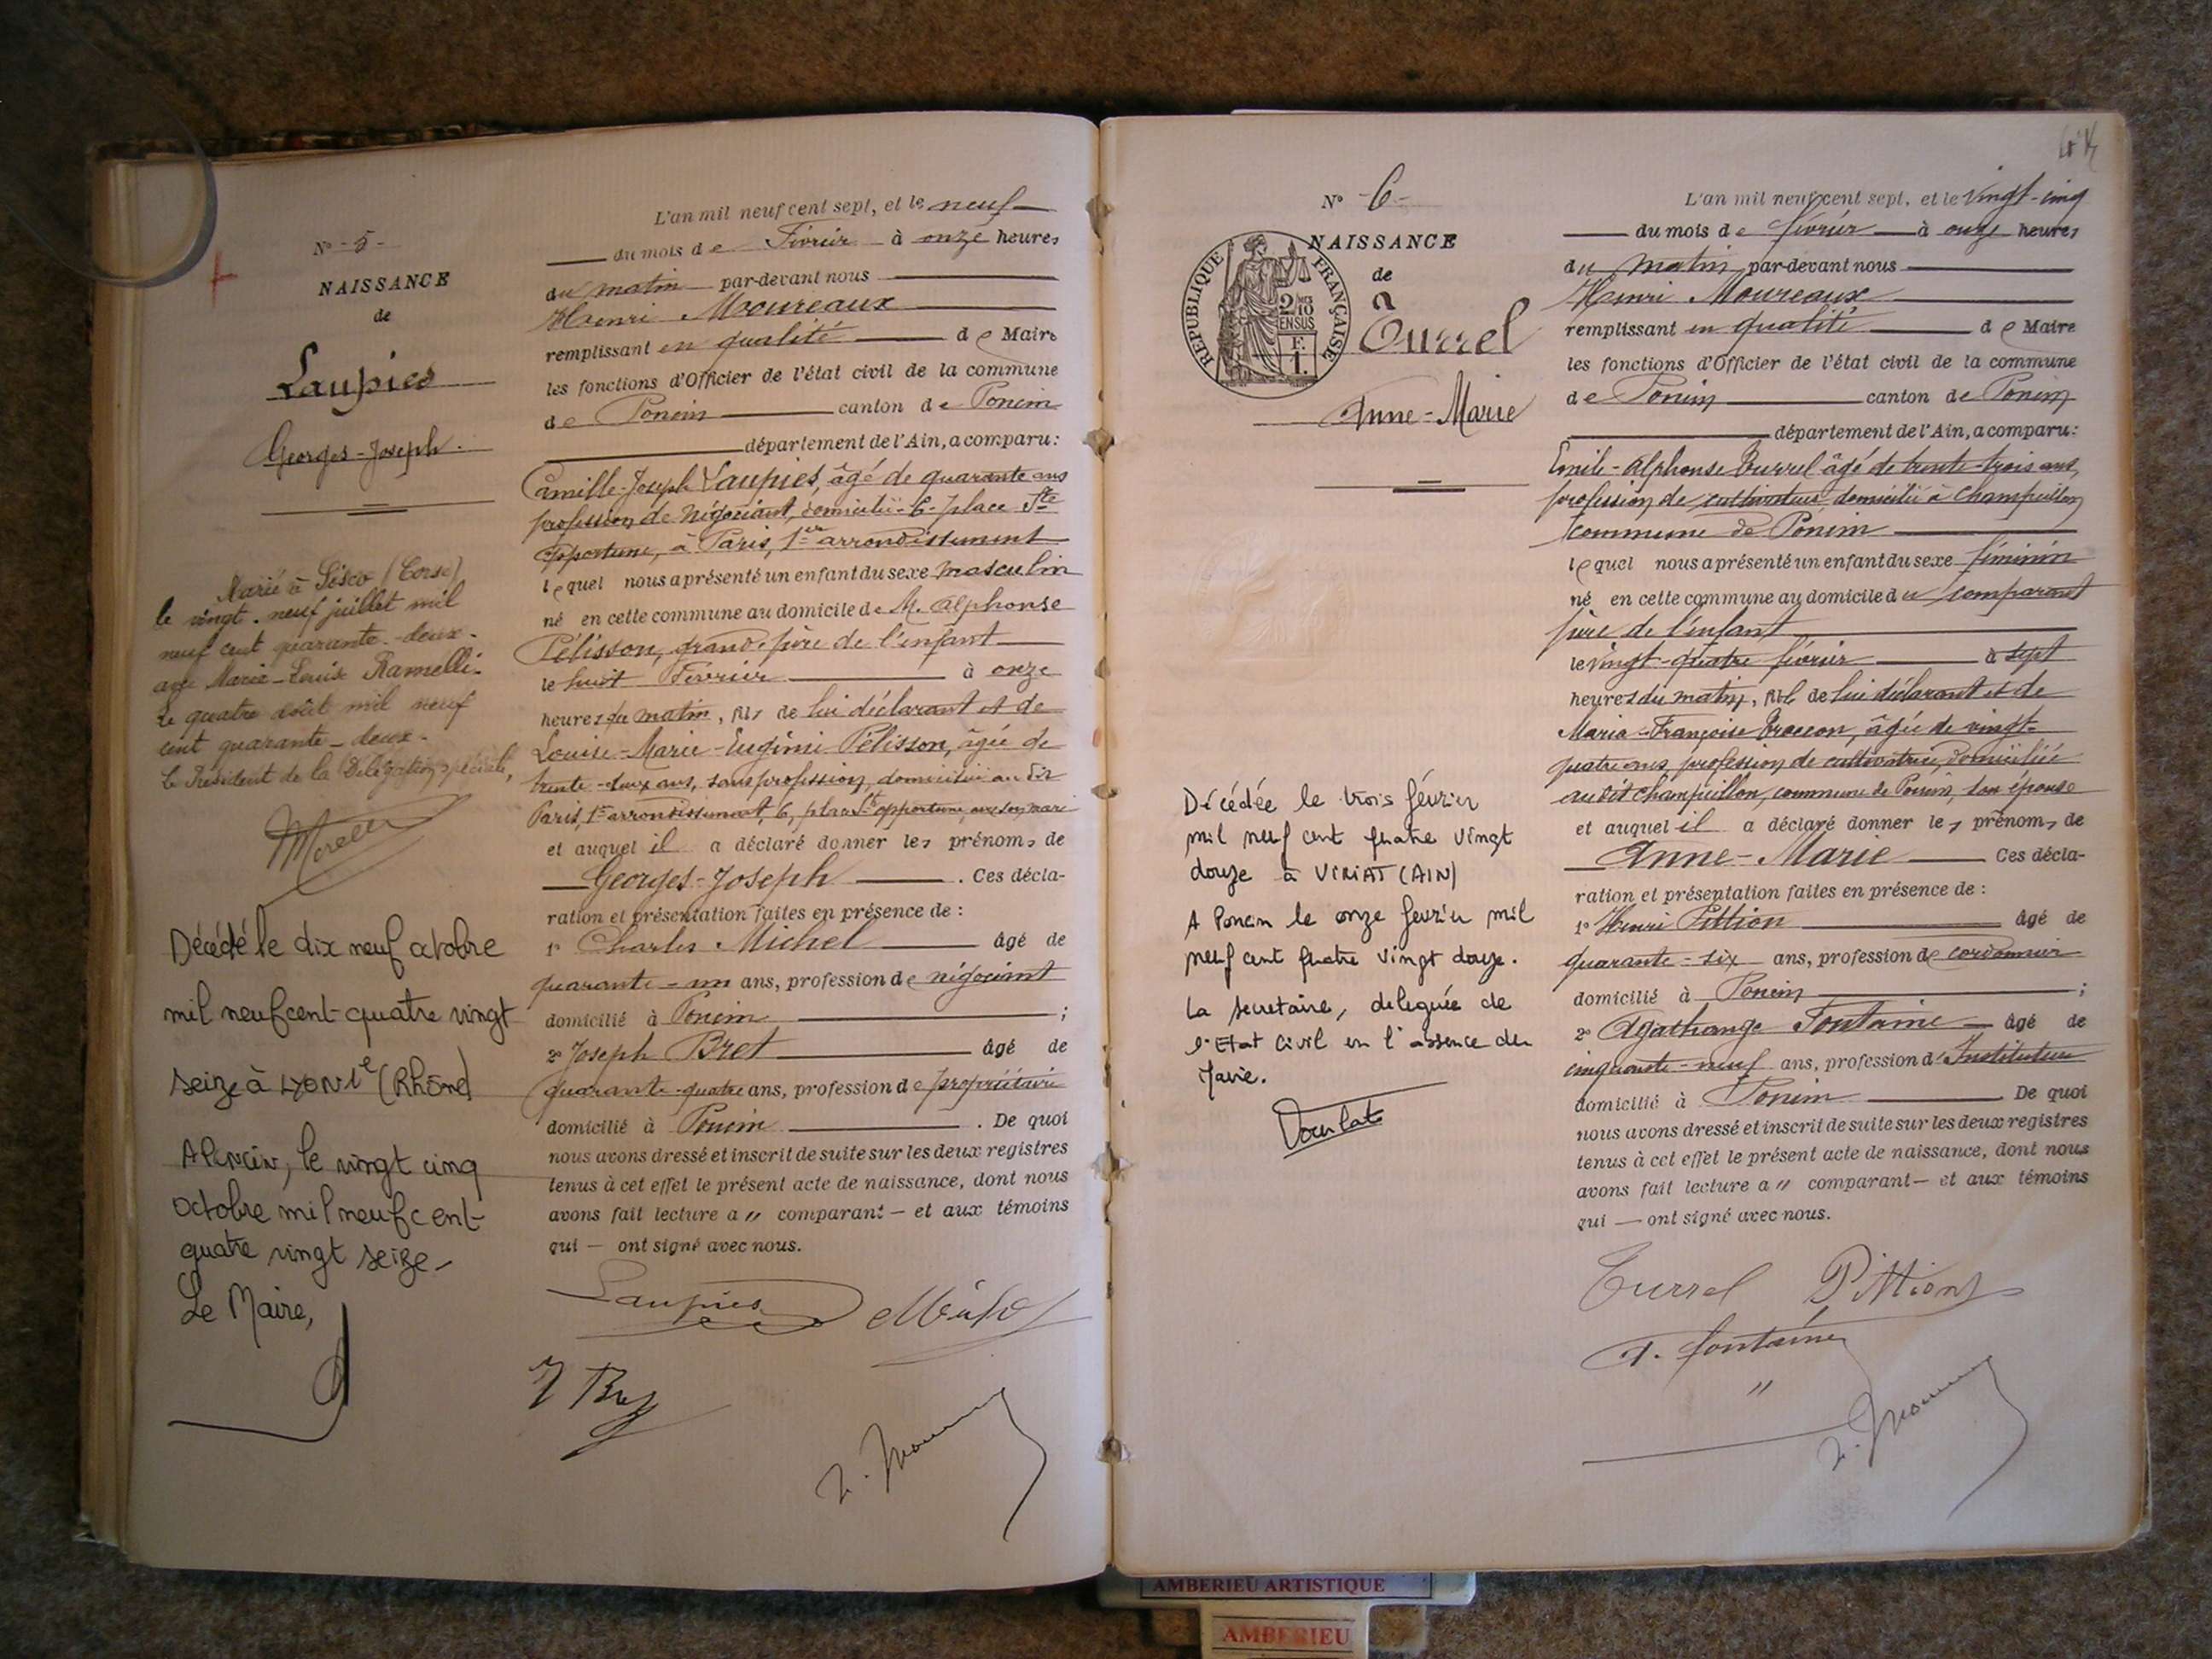 N° - 5 -
NAISSANCE
de
Laupies
Georges-Joseph.
Marié à Sisco (Corse)
le vingt-neuf juillet mil
neuf cent quarante-deux
avec Marie-Louise Ramelli.
Le quatre août mil neuf
cent quarante-deux.
Le Président de la Délégation spéciale,
Décédé le dix neuf octobre
mil neuf cent-quatre vingt
seize à LYON 1e (Rhône)
A Poncin, le vingt cinq
octobre mil neuf cent-
quatre vingt seize-
Le Maire,
L'an mil neuf cent sept, et le neuf
du mois de Février à onze heures
du matin par-devant nous
Henri Moureaux
remplissant en qualité de Maire
les fonctions d'Officier de l'état civil de la commune
de Poncin canton de Poncin
département de l'Ain, a comparu:
Camille-Joseph Laupies, âgé de quarante ans
profession de négociant, domicilié 6, place Ste
Opportune, à Paris, 1er arrondissement
lequel nous a présenté un enfant du sexe masculin
né en cette commune au domicile de M. Alphonse
Pélisson, grand-père de l'enfant
le huit Février à onze
heures du matin, fils de lui déclarant et de
Louise-Marie-Eugénie Pélisson, âgée de
trente-deux ans, sans profession, domiciliée au dit
Paris, 1er arrondissement, 6, place Ste opportune, avec son mari
et auquel il a déclaré donner les prénoms de
Georges-Joseph. Ces décla-
ration et présentation faites en présence de :
1° Charles Michel âgé de
quarante-un ans, profession de négociant
domicilié à Poncin ;
2° Joseph Bret âgé de
quarante-quatre ans, profession de propriétaire
domicilié à Poncin. De quoi
nous avons dressé et inscrit de suite sur les deux registres
tenus à cet effet le présent acte de naissance, dont nous
avons fait lecture a " comparant - et aux témoins
qui - ont signé avec nous.
Laupies
N° - 6 -
NAISSANCE
de
Turrel
Anne-Marie
REPUBLIQUE FRANÇAISE
2/10 EN SUS
F. 1.
Décédée le trois février
mil neuf cent quatre vingt
douze à VIRIAT (AIN)
A Poncin le onze février mil
neuf cent quatre vingt douze.
La secretaire, deleguée de
l'Etat Civil en l'absence du
Maire.
L'an mil neuf cent sept, et le vingt-cinq
du mois de février à onze heures
du matin par-devant nous
Henri Moureaux
remplissant en qualité de Maire
les fonctions d'Officier de l'état civil de la commune
de Poncin canton de Poncin
département de l'Ain, a comparu:
Emile-Alphonse Turrel âgé de trente-trois ans,
profession de cultivateur, domicilié à Champeillon
commune de Poncin
lequel nous a présenté un enfant du sexe féminin
né en cette commune au domicile du comparant
père de l'enfant
le vingt-quatre février à sept
heures du matin, fille de lui déclarant et de
Maria-Françoise âgée de vingt-
quatre ans profession de cultivatrice, domiciliée
audit Champeillon, commune de Poncin, son épouse
et auquel il a déclaré donner les prénoms de
Anne-Marie Ces décla-
ration et présentation faites en présence de :
1° Henri Pittion âgé de
quarante-six ans, profession de cordonnier
domicilié à Poncin ;
2° Agathange Fontaine âgé de
cinquante-neuf ans, profession d'Instituteur
domicilié à Poncin De quoi
nous avons dressé et inscrit de suite sur les deux registres
tenus à cet effet le présent acte de naissance, dont nous
avons fait lecture a " comparant - et aux témoins
qui - ont signé avec nous.
Turrel Pittion
A. Fontaine
AMBERIEU ARTISTIQUE
AMBERIEU